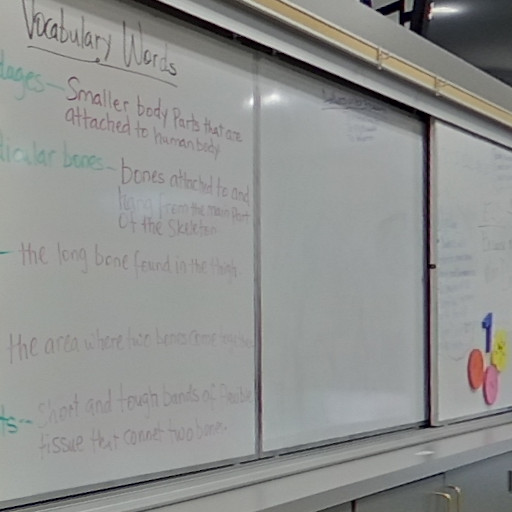 Vocabulary Words
dages - Smaller body Parts that are
attached to human body
dicular bones - bones attached to and
hang from the main part
of the skeleton
- the long bone found in the thigh
the area where two bones come together
ts - short and tough bands of flexible
tissue that connet two bone.